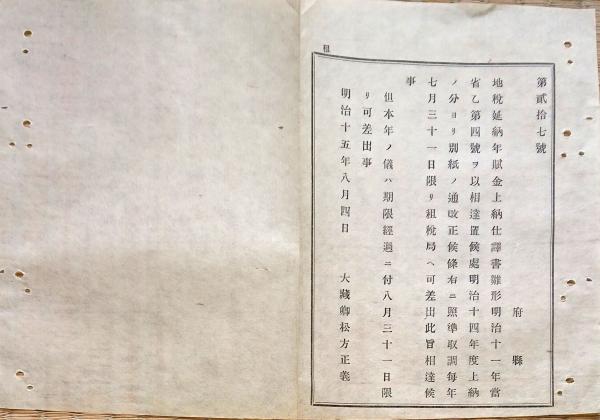 租
第貳拾七號
府縣
地稅延納年賦金上納仕譯書雛形明治十一年當
省乙第四號ヲ以相達置候處明治十四年度上納
ノ分ヨリ別紙ノ通改正候條右ニ照準取調每年
七月三十一日限リ租稅局ヘ可差出此旨相達候
事
但本年ノ儀ハ期限經過ニ付八月三十一日限
リ可差出事
明治十五年八月四日
大藏卿松方正義